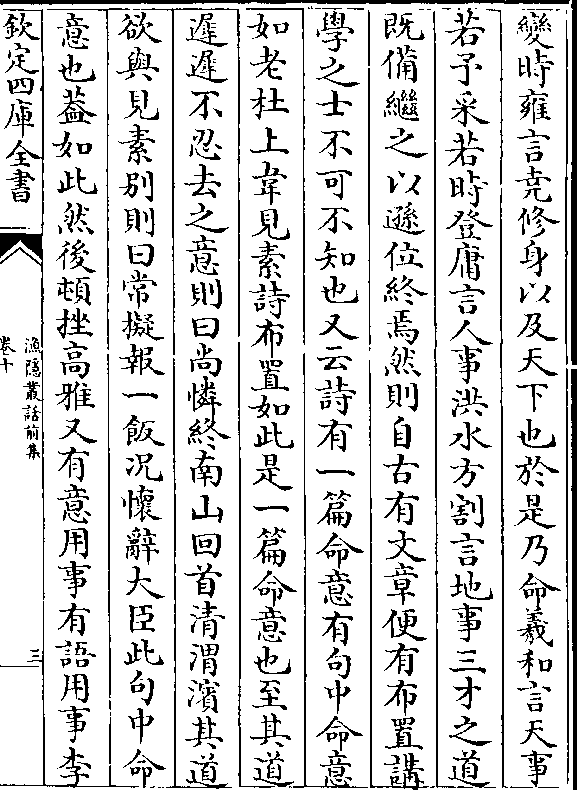 變時雍言堯修身以及天下也於是乃命羲和言天事
若予采若時登庸言人事洪水方割言地事三才之道
既備繼之以遜位終焉然則自古有文章便有布置講
學之士不可不知也又云詩有一篇命意有句中命意
如老杜上韋見素詩布置如此是一篇命意也至其道
遲遲不忍去之意則曰尚憐終南山回首清渭濱其道
欲與見素別則曰常擬報一飯况懷辭大臣此句中命
意也葢如此然後頓挫高雅又有意用事有語用事李
欽定四庫全書
漁隠叢話前集
卷十
三